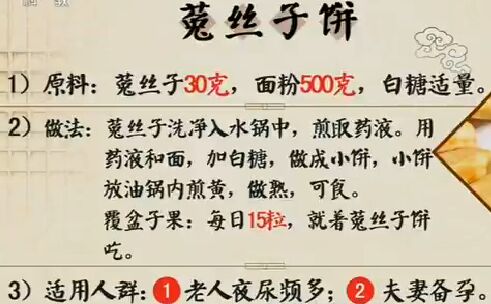 科教
菟丝子饼
1）原料：菟丝子30克，面粉500克，白糖适量。
2）做法：菟丝子洗净入水锅中，煎取药液。用
药液和面，加白糖，做成小饼，小饼
放油锅内煎黄，做熟，可食。
覆盆子果：每日15粒，就着菟丝子饼
吃。
3）适用人群：1 老人夜尿频多；2 夫妻备孕。